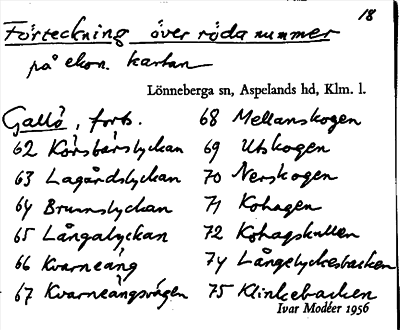 18
Förteckning över röda nummer
på ekon. kartan
Lönneberga sn, Aspelands hd, Klm. l.
Gallö, forts.
62 Körsbärslyckan
63 Lagårdslyckan
64 Brunnslyckan
65 Långalyckan
66 Kvarneäng
67 Kvarneängsvägen
68 Mellanskogen
69 Utskogen
70 Nerskogen
71 Kohagen
72 Kohagskullen
74 Långelyckesbacken
75 Klinkebacken
Ivar Modéer 1956